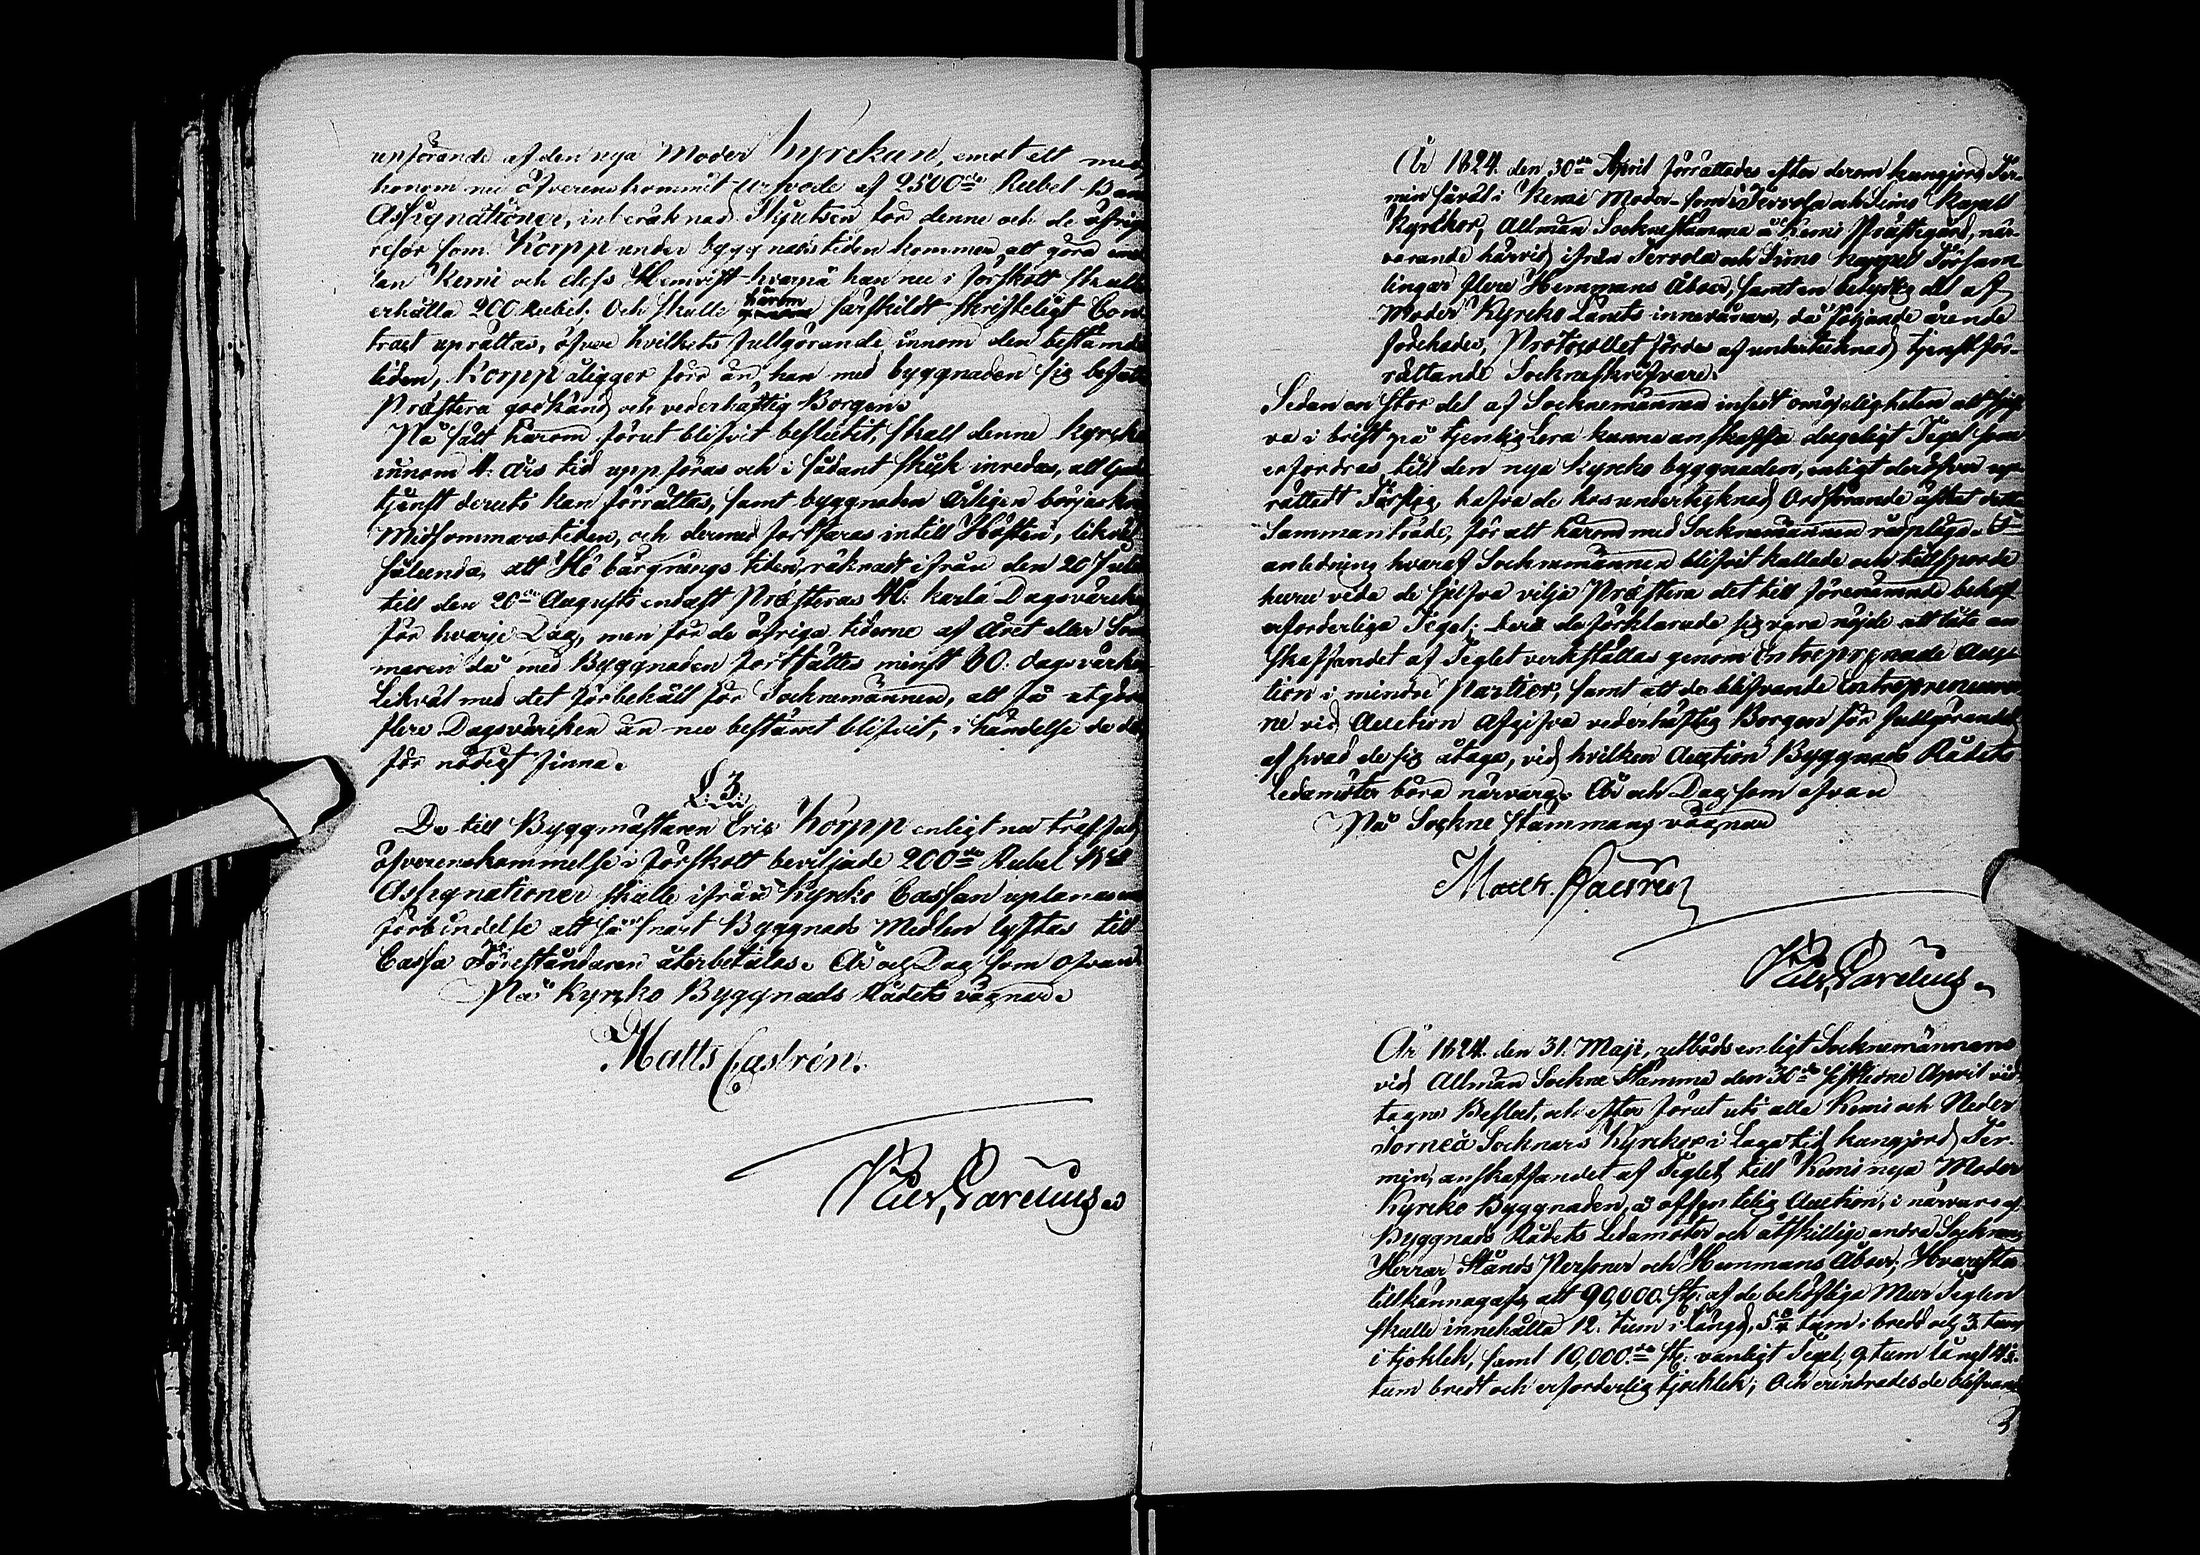 upförande af den nya Moder Kyrckan, emot ett med
honom nu öfverenskommit arfvode af 2500de Rubel Banco
Assignationer, inberäknad Skjutsen för denne och de öfriga
resor som Korpp under byggnadstiden kommer att göra emel-
lan Kemi och dess Hemvist hvarpå han nu i förskott skulle
erhålla 200 Rubel; Och skulle härom särskildt skrifteligt Con-
tract uprättas, öfver hvilkets fullgörande innom den bestämda
tiden, Korpp åligger förr än han med byggnaden sig befattar
Præstera godkänd och vederhäftig Borgen.
På sätt härom förut blifvit beslutit, skall denne Kyrcka
innom 4. Års tid uppföras och i sådant skick inredas, att Guds
tjenst deruti kan förrättas, samt byggnaden Årligen börjas kring
Midsommarstiden, och dermed fortfaras intill Hösten, likväl
sålunda, att Hö bärgnings tiden, räknadt ifrån den 20 Julii
till den 20de Augusti endast Præsteras 40. karla Dagsvärcken
för hvarje Dag, men för de öfriga tiderne af Året eller Som-
maren då med Byggnaden fortsättes minst 60. dagsvärken
Likväl med det förbehåll för Socknemännen, att få utgöra
flere Dagsvärcken än nu bestämt blifvit, i händelse de det
för nödigt finna.
§. 3.
De till Byggmästaren Eric Korpp enligt nu träffad
öfverenskommelse i förskott beviljade 200de Rubel Bco
Assignationer skulle ifrån Kyrko Cassan uplånas med
förbindelse att så snart Byggnads Medlen lyftas till
Cassa Föreståndaren återbetalas. År och Dag som ofvan.
På Kyrcko Byggnads Rådets vägnar.
Matts Castrén.
År 1824. den 30de April förrättades efter derom kungjord Ter-
min såväl i Kemi Moder- som i Tervola och Simo Kapell
Kyrckor, Allmän Socknestämma å Kemi Prästegård, när-
varande härvid ifrån Tervola och Simo Kappell Församl-
lingar flere Hemmans Åboer, samt en betydlig del af
Moder Kyrcko Länets innevånare, då följande ärende
förehades, Protocollet fördes af undertecknad tjenstför-
rättande Socknskrifvare.
Sedan en stor del af Socknemännen insedt omöjeligheten att sjelf-
ve i brist på tjenlig Lera kunna anskaffa dugeligt Tegel som
erfordras till den nya Kyrcko byggnaden, enligt deröfver up-
rättadt Förslag, hafva de hos undertecknad Ordförande äskat detta
Sammanträde, för att härom med Socknemännen rådpläga. I
anledning hvaraf Socknemännen blifvit kallade och tillsporde
huru vida de sjelfva vilja Præstera det till förenämnde behof
erforderliga Tegel; Dere då förklarade sig vara nöjde att låta an-
skaffandet af Teglet verkställas genom Entreprenade Auc-
tion i mindre Partier, samt att de blifvande Entrepreneurer-
ne vid Auction afgifva vederhäftig Borgen för fullgörandet
af hvad de sig åtaga, vid hvilken Auction Byggnads Rådets
Ledamöter böra närvara. År och Dag som ofvan
På Sockne stämmans vägnar
Matth. Castrén
År 1824. den 31. Maji, utböds enligt Socknemännens
vid Allmän Sockne Stämma den 30de sistledne April vid-
tagne Beslut, och efter förut uti alle Kemi och Neder
Torneå Socknars Kyrckor i Laga tid kungjord Ter-
min, anskaffandet af Teglet till Kemi nya Moder
Kyrcko Byggnaden, å offentelig Auction, i närvaro af
Byggnads Rådets Ledamöter och åtskillige andra Socknens
Herrar Stånds Personer och Hemmans Åboer; Hvarefter
tillkännagafs, att 90,000. st. af de behöflige Mur Teglen
skulle innehålla 12. tum i längd, 5¾ tum i bredd och 3. tum
i tjoklek, samt 10,000.de st. vanligt Tegel, 9. tum långt 4½.
tum bredt och erforderlig tjocklek; Och erindrades de blifvande